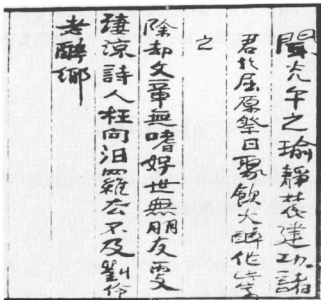 聞亢午之瑜靜茂建功諸
君於屈原祭日聚飲大醉作此
之
除却文章無嗜好世無朋友更
淒涼詩人枉向汨羅去不及劉伶
老醉鄉